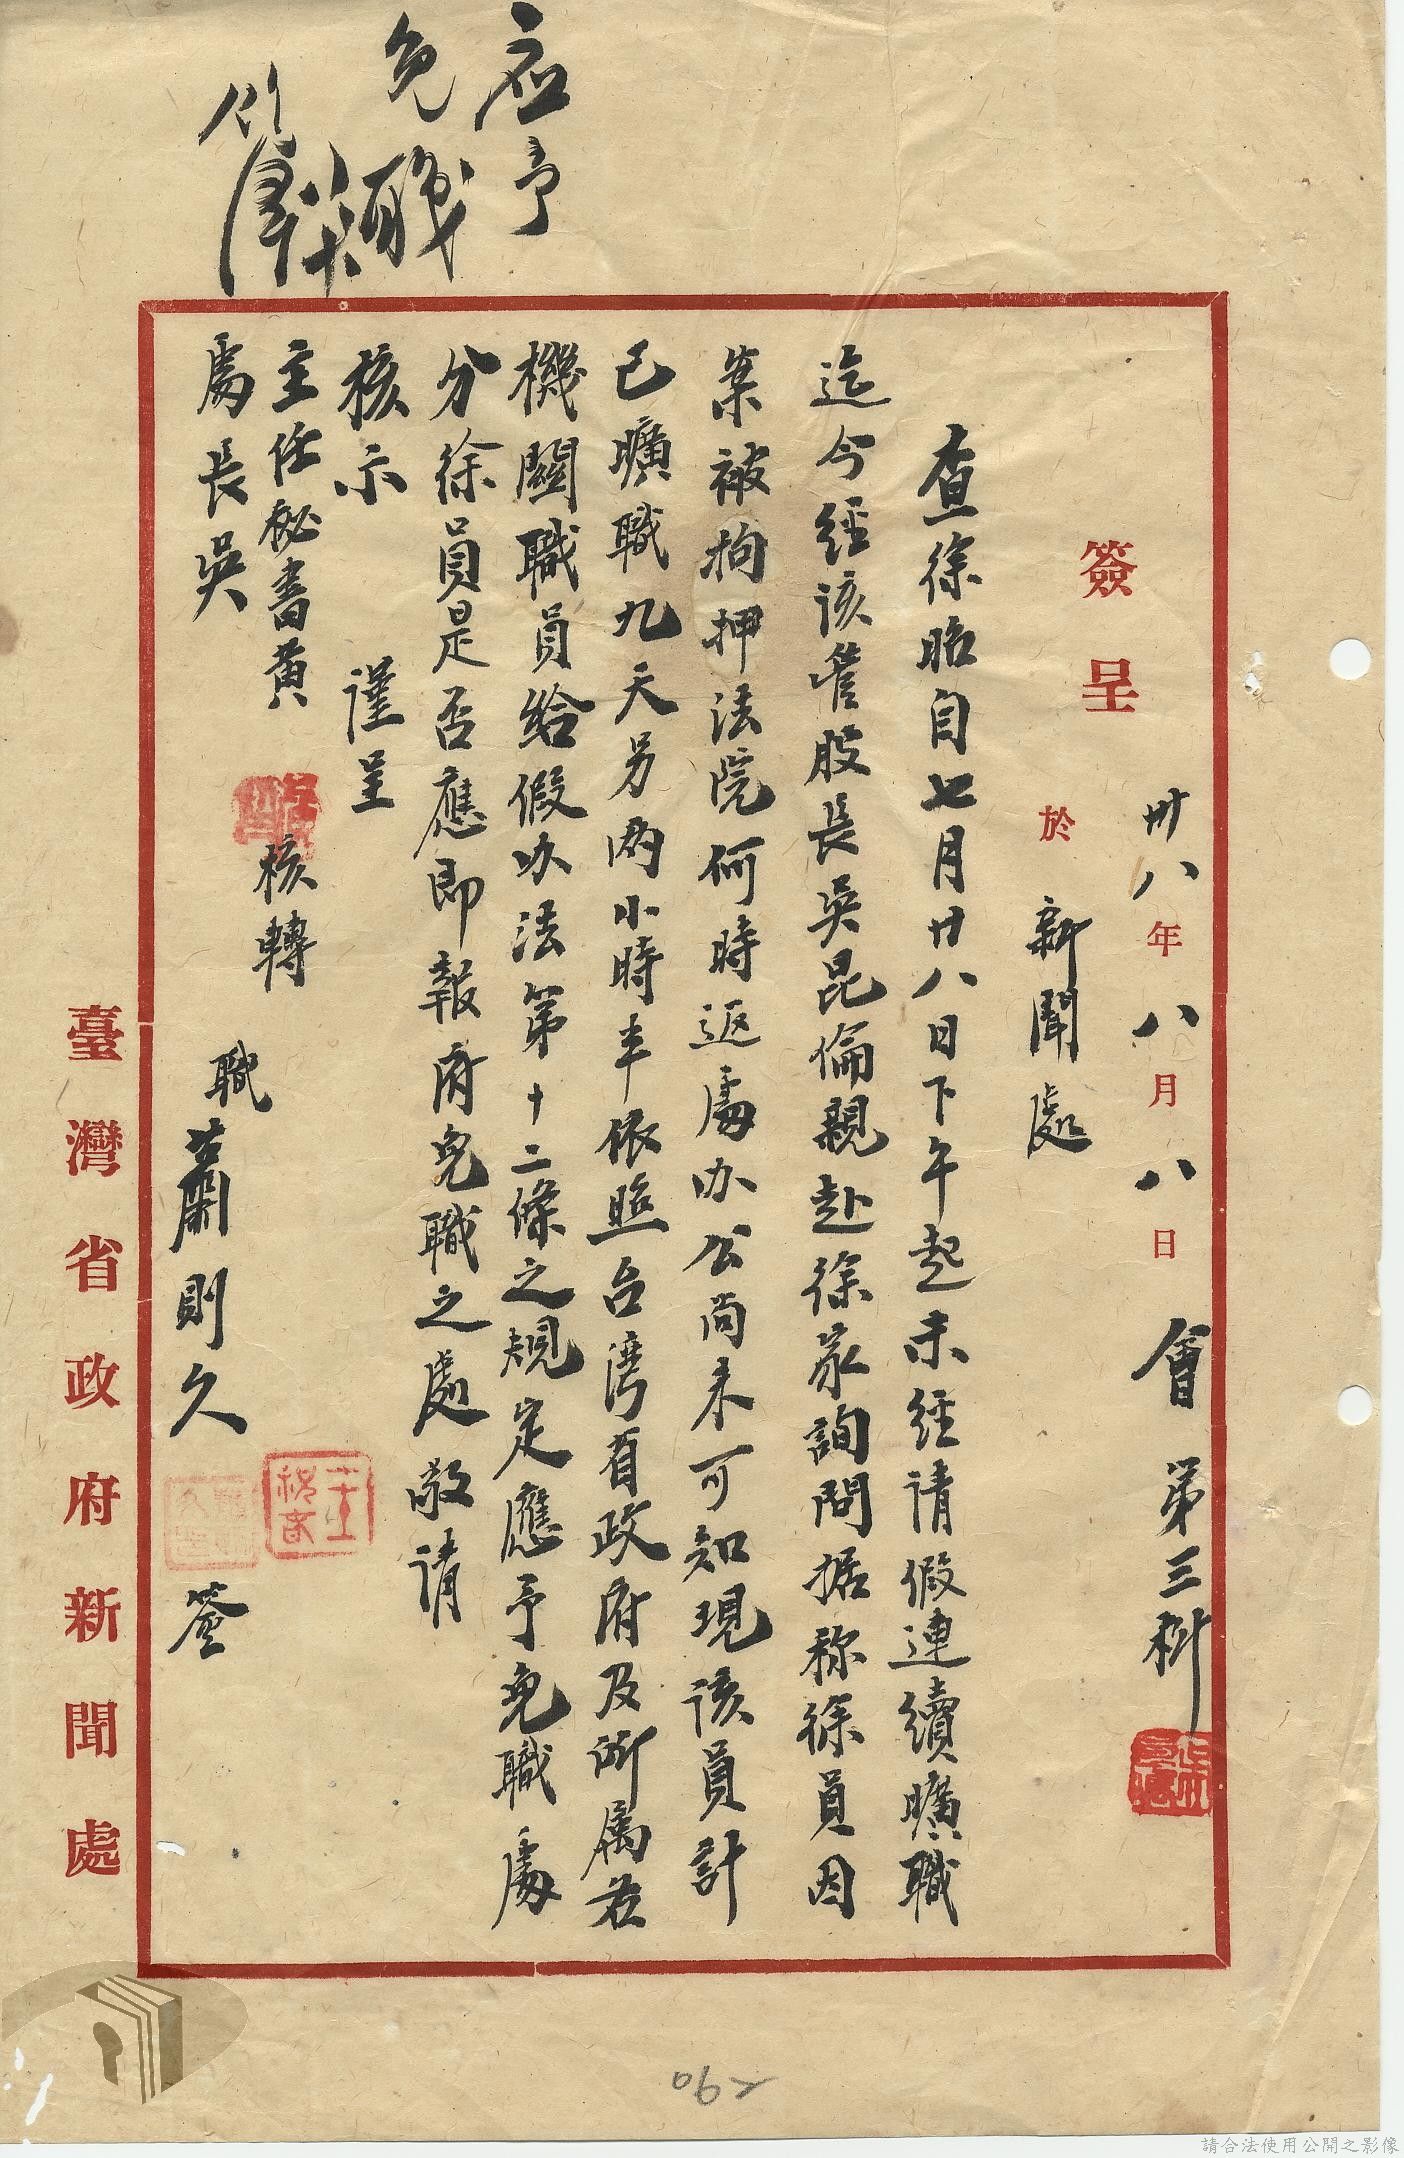 簽呈
卅八年八月八日
於 新聞處
會 第三科
查徐昭自七月廿八日下午起未經请假連續曠職
迄今經该管股長吳昆倫親赴徐家詢問据称徐員因
案被拘押法院何時返處办公尚未可知現该員計
已曠職九天另两小時半依照台湾省政府及所属各
機關職員給假办法第十二條之規定應予免職處
分徐員是否應即報府免職之處敬请
核示 谨呈
主任秘書黄 核轉
處長吳
職 蕭則久 簽
应予
免職
臺灣省政府新聞處
請合法使用公開之影像